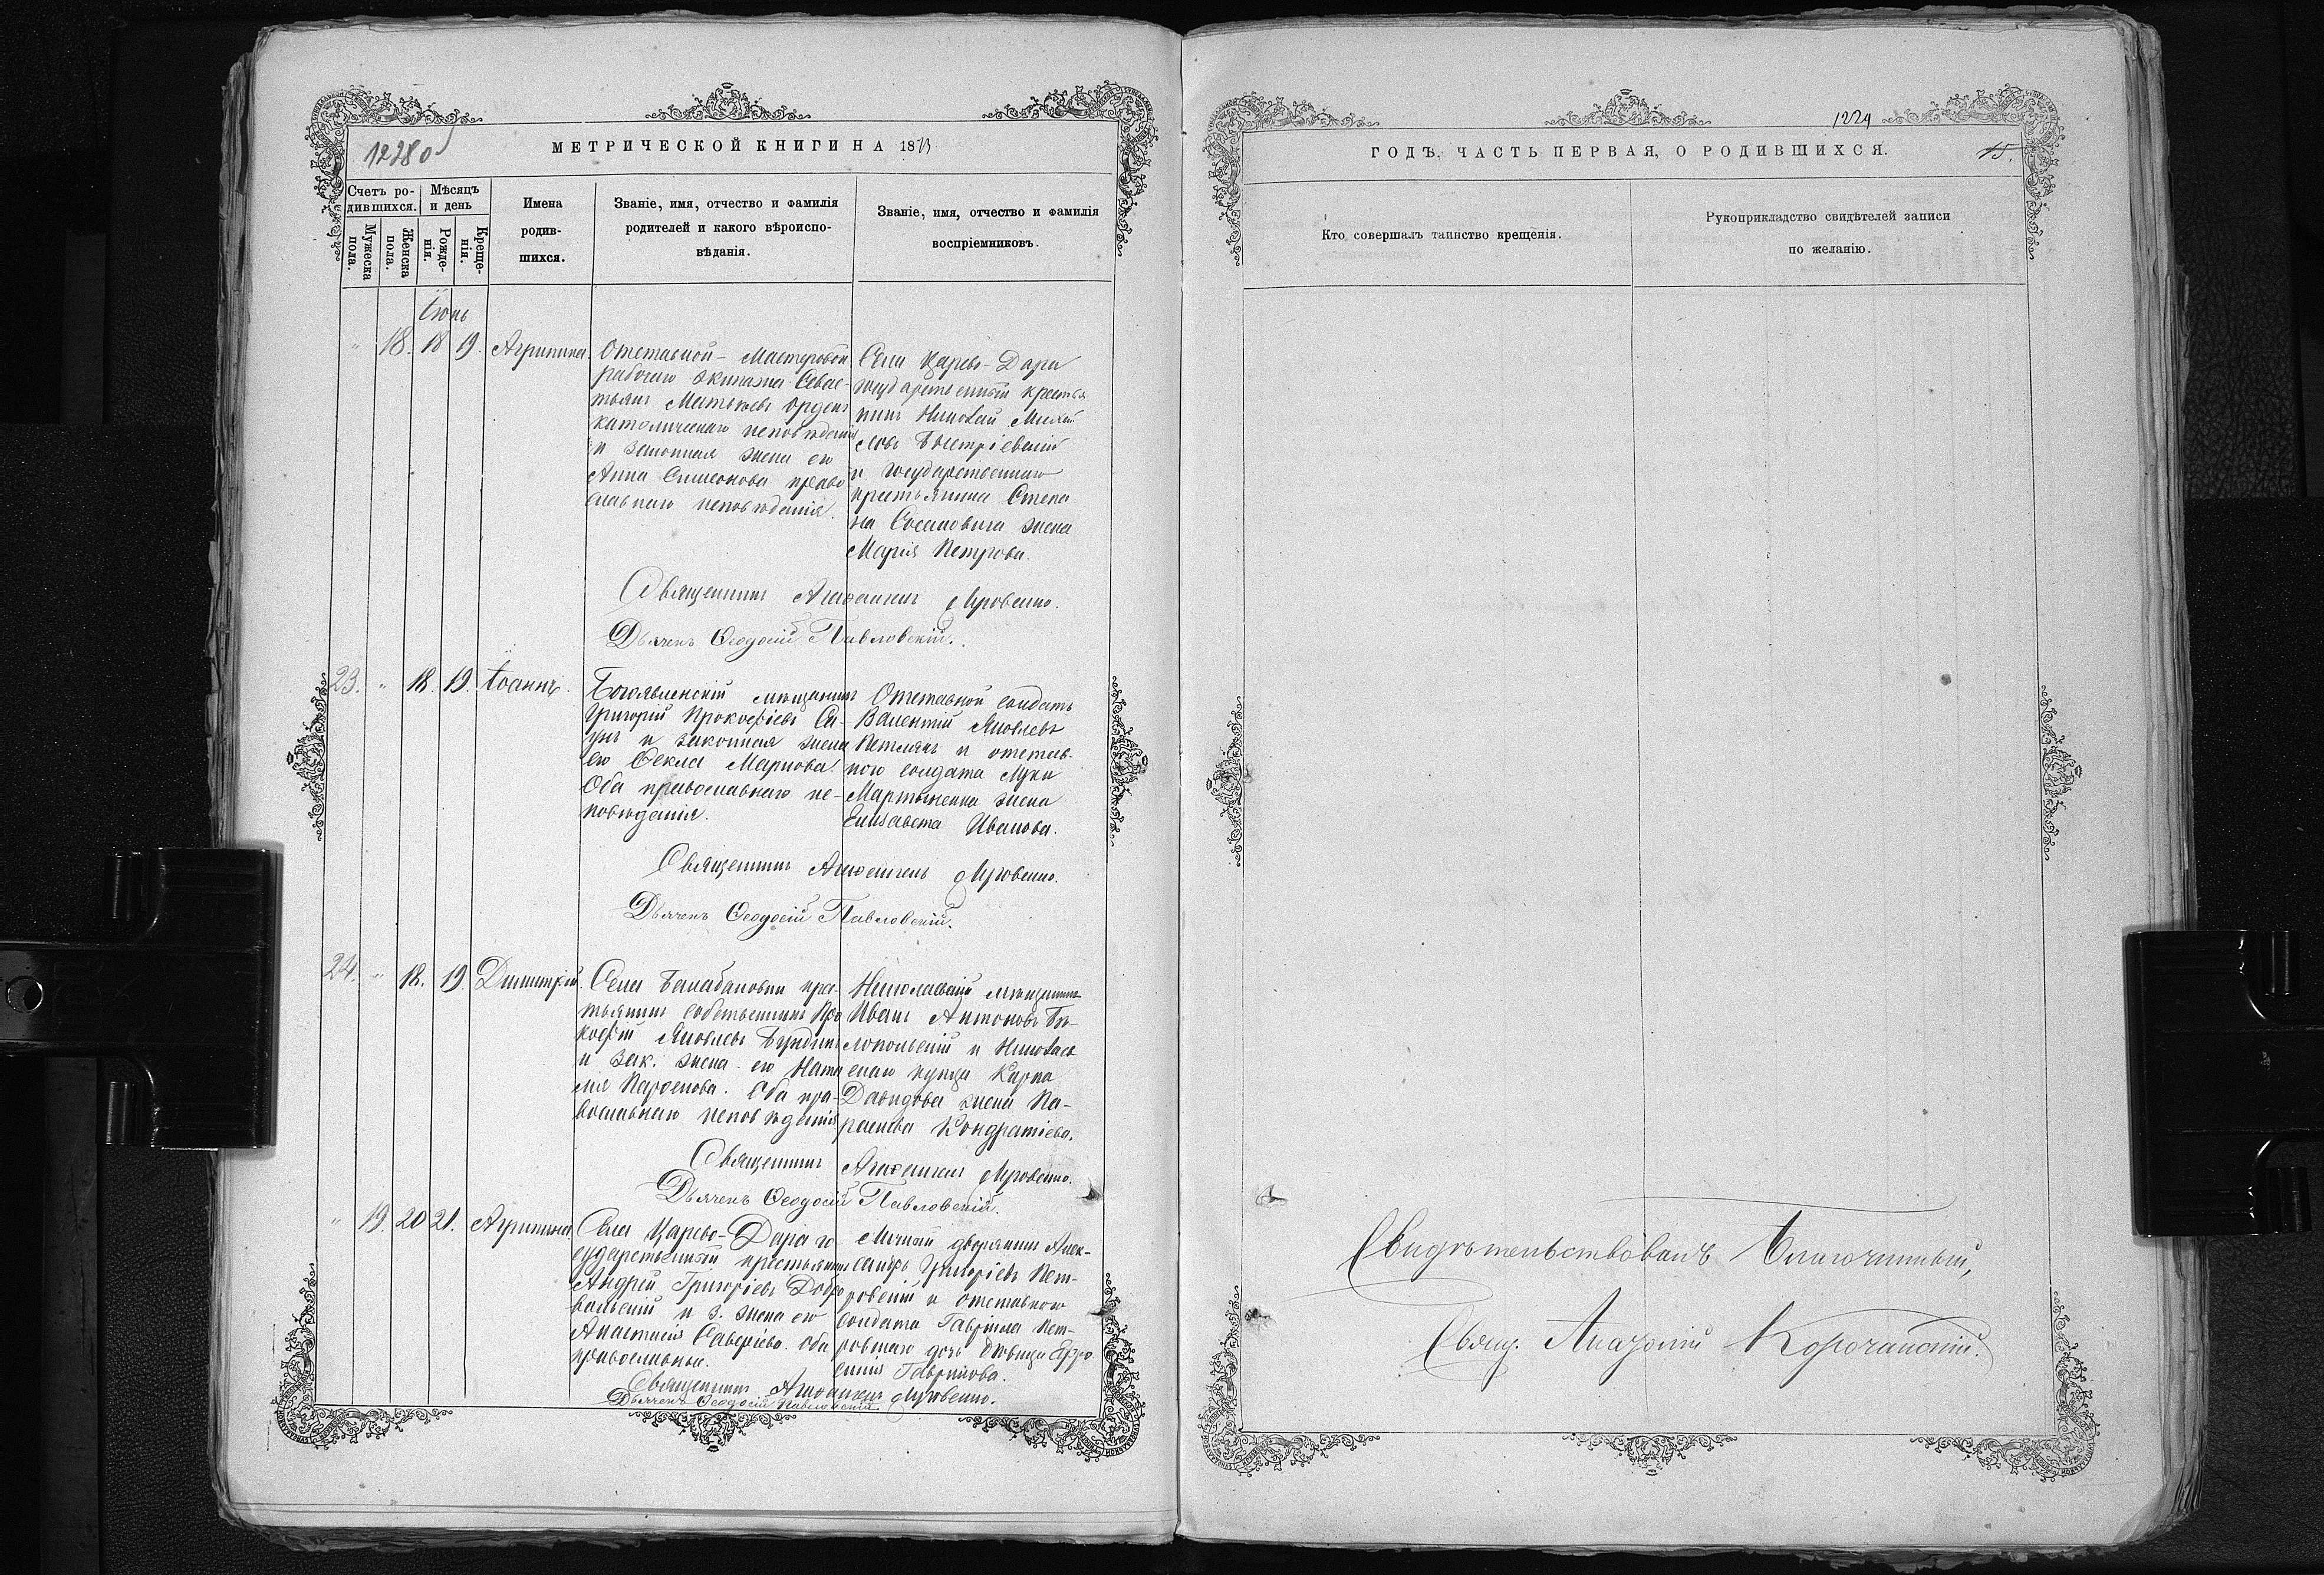 12280
МЕТРИЧЕСКОЙ КНИГИ НА 1873
Счетъ ро-
дившихся.
Мѣсяцъ
и день
Мужеска
пола.
Женска
пола.
Рожде-
нія.
Креще-
нія.
Имена
родив-
шихся.
Званіе, имя, отчество и фамилія
родителей и какого вѣроиспо-
вѣданія.
Званіе, имя, отчество и фамилія
воспріемниковъ.
Іюнь
" 18. 18 19. Агрипина.
Отставной - Мастеровой
рабочаго экипажа Севас-
тьянъ Матвѣевъ
католическаго исповѣданія
и законная жена его
Анна Симеонова право
славнаго исповѣданія.
Села Царево-Дара
государственный крестья
нинъ Николай Михай
ловъ
и государственнаго
крестьянина Степа
на жена
Марія Петрова.
Священникъ
Дьячекъ Ѳеодосій Павловскій.
23. " 18. 19. Іоаннъ.
Богоявленскій мѣщанинъ
Григорій Прокофіевъ
и законная жена
его Ѳекла Маркова.
Оба православнаго ис-
повѣданія.
Отставной солдатъ
Валентій Яковлевъ
и отстав-
ного солдата Луки
Мартыненка жена
Елисавета Иванова.
Священникъ
Дьячекъ Ѳеодосій Павловскій.
24. " 18. 19. Димитрій.
Села Балабановки крес-
тьянинъ собственникъ Про
кофій Яковлевъ
и зак. жена его Ната
лія Парѳенова. Оба пра-
вославнаго исповѣданія
Николаевскій мѣщанинъ
Иванъ Антоновъ Бѣ-
лопольскій и Николаев
скаго купца Карпа
Давидова жена Па-
раскева Кондратіева.
Священникъ
Дьячекъ Ѳеодосій Павловскій.
" 19. 20 21. Агрипина
Села Царево-Дара го
сударственный крестьянинъ
Андрей Григоріевъ Добро
вольскій и з. жена его
Анастасія Савеліева. Оба
православные.
Личный дворянинъ Алек-
сандръ Григоріевъ Пет-
ровскій и отставного
солдата Гавріила Пет-
ровскаго дочь дѣвица Ефро
синія Гавриилова.
Священникъ
Дьячекъ Ѳеодосій Павловскій.
1229
ГОДЪ, ЧАСТЬ ПЕРВАЯ, О РОДИВШИХСЯ.
15.
Кто совершалъ таинство крещенія.
Рукоприкладство свидѣтелей записи
по желанію.
Свидѣтельствовалъ Благочинный,
Свящ. Анатолій Корочанскій.